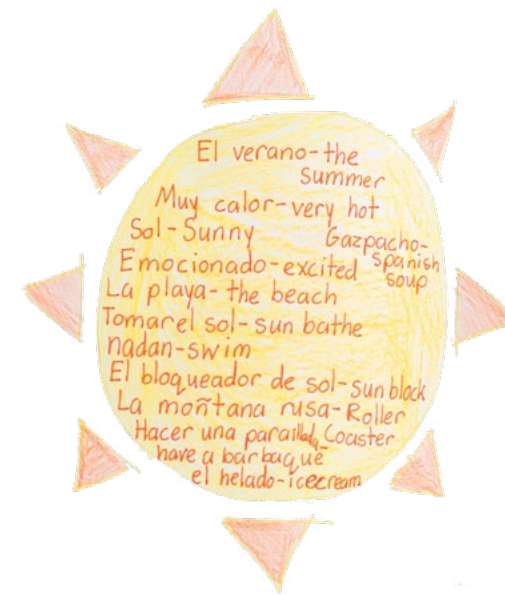 El verano-the
summer
Muy calor-very hot
Sol-Sunny
Gazpacho-
spanish
soup
Emocionado-excited
La playa-the beach
Tomar el sol-sun bathe
nadan-swim
El bloqueador de sol-sun block
La moñtana rusa-Roller
Coaster
Hacer una parailllada-
have a barbaque
el helado-icecream